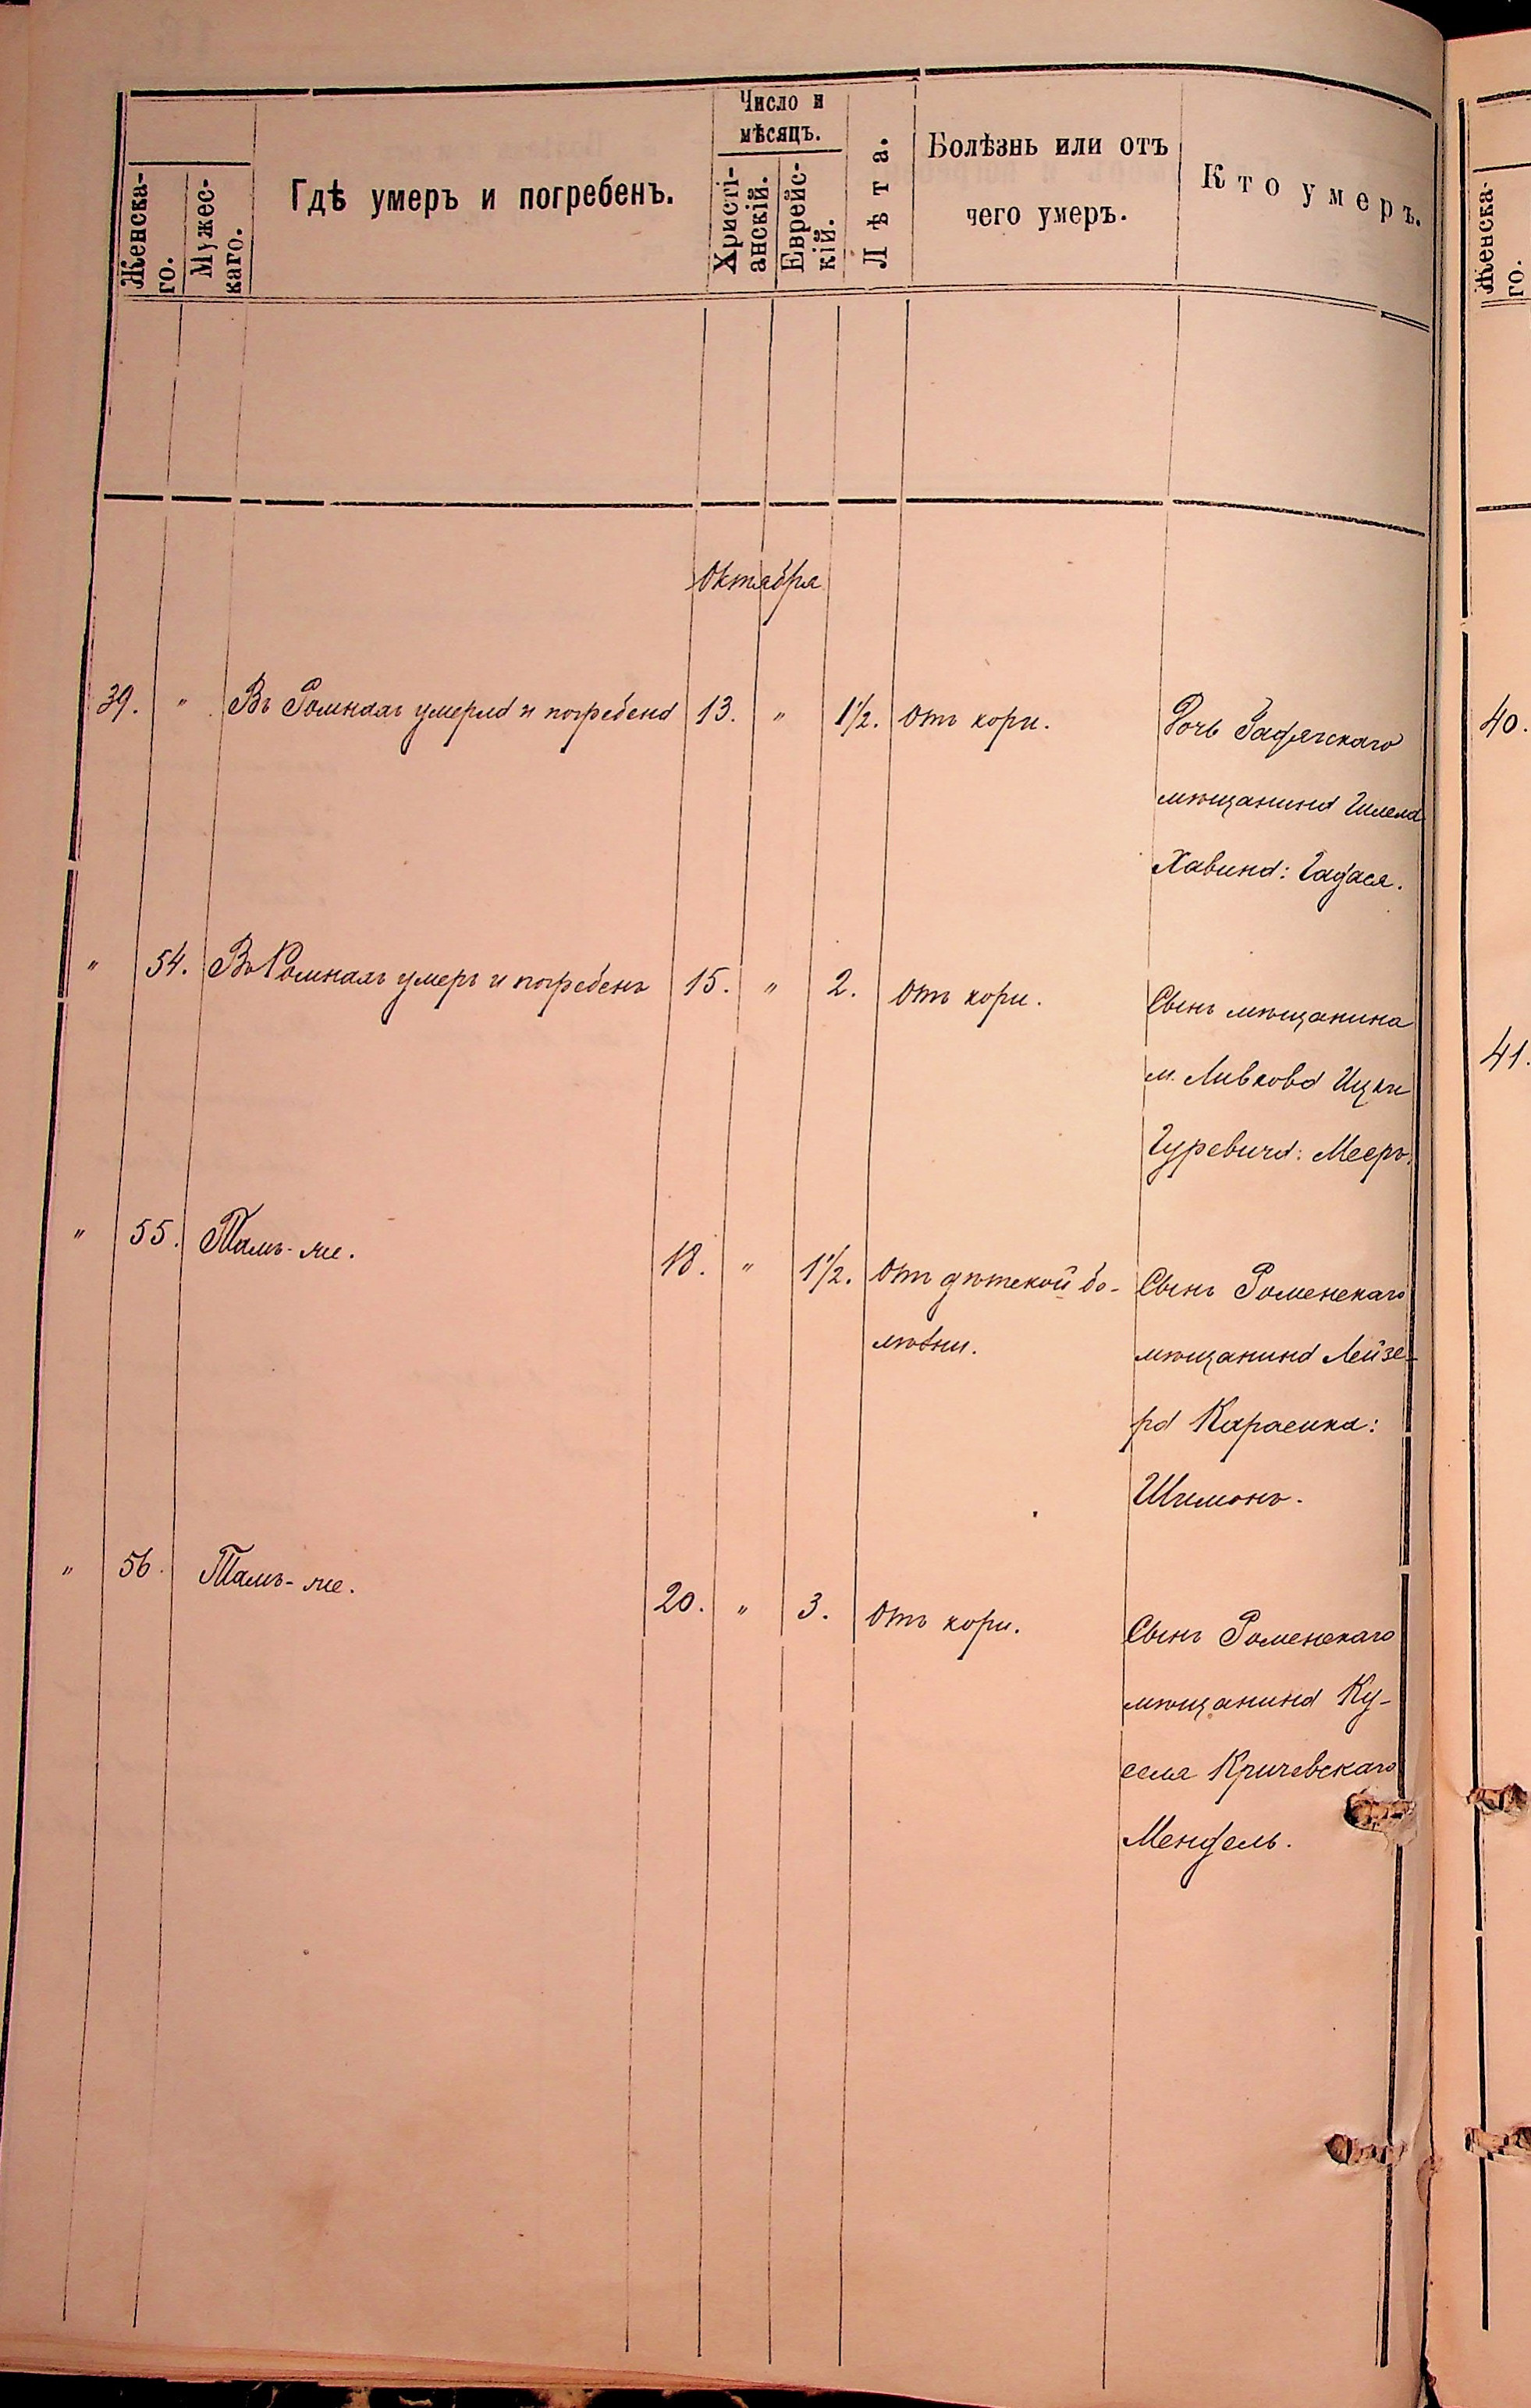 Женска-
го.
Мужес-
каго.
Гдѣ умеръ и погребенъ.
Число и
мѣсяцъ.
Христі-
анскій.
Еврейс-
кій.
Лѣта.
Болѣзнь или отъ
чего умеръ.
Кто умеръ.
Женска-
го.
Октября
39. " Въ Ромнахъ умерла и погребена 13. " 1½. Отъ кори. Дочь Гадячскаго
мѣщанина
Хавина: Гадася.
" 54. Въ Ромнахъ умеръ и погребенъ 15. " 2. Отъ кори. Сынъ мѣщанина
м. Ицки
Гуревича: Мееръ.
" 55. Тамъ-же. 18. " 1½. Отъ дѣтской бо- Сынъ Роменскаго
лѣзни. мѣщанина Лейзе-
ра
Шимонъ.
" 56. Тамъ-же. 20. " 3. Отъ кори. Сынъ Роменскаго
мѣщанина Ку-
селя Кричевскаго
Мендель.
40.
41.